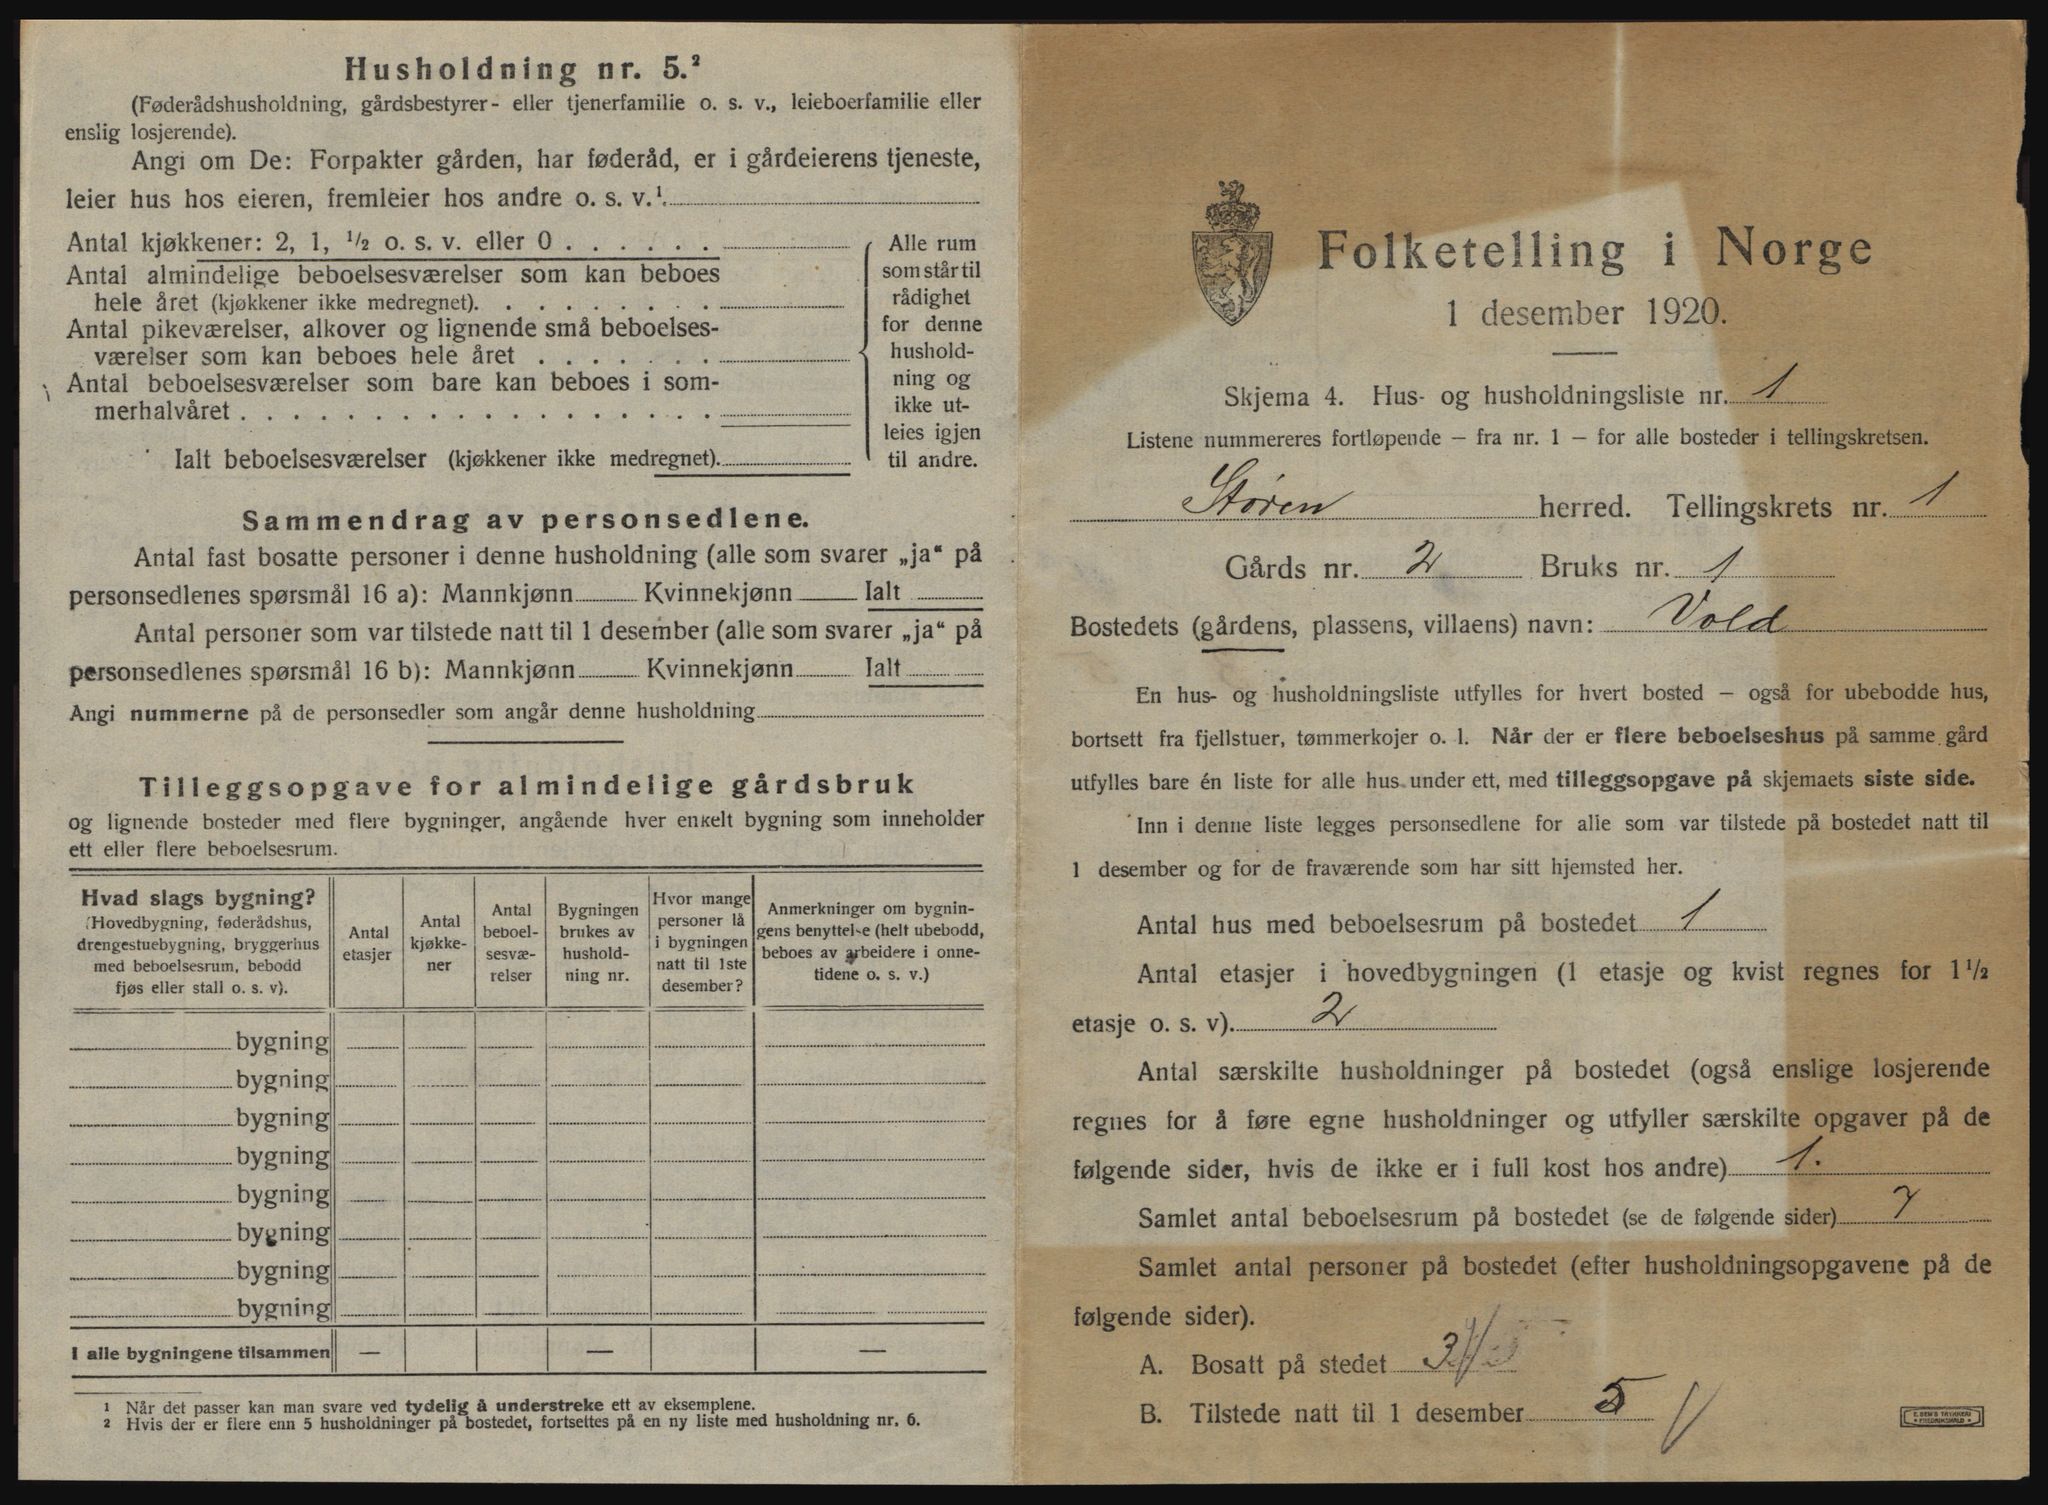 Husholdning nr. 5.²
(Føderådshusholdning, gårdsbestyrer- eller tjenerfamilie o. s. v., leieboerfamilie eller
enslig losjerende).
Angi om De: Forpakter gården, har føderåd, er i gårdeierens tjeneste,
leier hus hos eieren, fremleier hos andre o. s. v.¹
Antal kjøkkener: 2, 1, ½ o. s. v. eller 0 . . . . . .
Antal almindelige beboelsesværelser som kan beboes
hele året (kjøkkener ikke medregnet). . . . . . . . .
Antal pikeværelser, alkover og lignende små beboelses-
værelser som kan beboes hele året . . . . . . .
Antal beboelsesværelser som bare kan beboes i som-
merhalvåret . . . . . . . . . . . . . . . . . .
Ialt beboelsesværelser (kjøkkener ikke medregnet).
Alle rum
som står til
rådighet
for denne
hushold-
ning og
ikke ut-
leies igjen
til andre.
Sammendrag av personsedlene.
Antal fast bosatte personer i denne husholdning (alle som svarer „ja“ på
personsedlenes spørsmål 16 a): Mannkjønn Kvinnekjønn Ialt
Antal personer som var tilstede natt til 1 desember (alle som svarer „ja“ på
personsedlenes spørsmål 16 b): Mannkjønn Kvinnekjønn Ialt
Angi nummerne på de personsedler som angår denne husholdning
Tilleggsopgave for almindelige gårdsbruk
og lignende bosteder med flere bygninger, angående hver enkelt bygning som inneholder
ett eller flere beboelsesrum.
Hvad slags bygning?
(Hovedbygning, føderådshus,
drengestuebygning, bryggerhus
med beboelsesrum, bebodd
fjøs eller stall o. s. v).
Antal
etasjer
Antal
kjøkke-
ner
Antal
beboel-
sesvæ-
relser
Bygningen
brukes av
hushold-
ning nr.
Hvor mange
personer lå
i bygningen
natt til 1ste
desember?
Anmerkninger om bygnin-
gens benyttelse (helt ubebodd,
beboes av arbeidere i onne-
tidene o. s. v.)
bygning
bygning
bygning
bygning
bygning
bygning
bygning
bygning
I alle bygningene tilsammen — — —
¹ Når det passer kan man svare ved tydelig å understreke ett av eksemplene.
² Hvis der er flere enn 5 husholdninger på bostedet, fortsettes på en ny liste med husholdning nr. 6.
Folketelling i Norge
1 desember 1920.
Skjema 4. Hus- og husholdningsliste nr. 1
Listene nummereres fortløpende – fra nr. 1 – for alle bosteder i tellingskretsen.
Støren herred. Tellingskrets nr. 1
Gårds nr. 2 Bruks nr. 1
Bostedets (gårdens, plassens, villaens) navn: Vold
En hus- og husholdningsliste utfylles for hvert bosted – også for ubebodde hus,
bortsett fra fjellstuer, tømmerkojer o. l. Når der er flere beboelseshus på samme gård
utfylles bare én liste for alle hus under ett, med tilleggsopgave på skjemaets siste side.
Inn i denne liste legges personsedlene for alle som var tilstede på bostedet natt til
1 desember og for de fraværende som har sitt hjemsted her.
Antal hus med beboelsesrum på bostedet 1
Antal etasjer i hovedbygningen (1 etasje og kvist regnes for 1½
etasje o. s. v). 2
Antal særskilte husholdninger på bostedet (også enslige losjerende
regnes for å føre egne husholdninger og utfyller særskilte opgaver på de
følgende sider, hvis de ikke er i full kost hos andre) 1.
Samlet antal beboelsesrum på bostedet (se de følgende sider) 7
Samlet antal personer på bostedet (efter husholdningsopgavene på de
følgende sider).
A. Bosatt på stedet 3
B. Tilstede natt til 1 desember 5